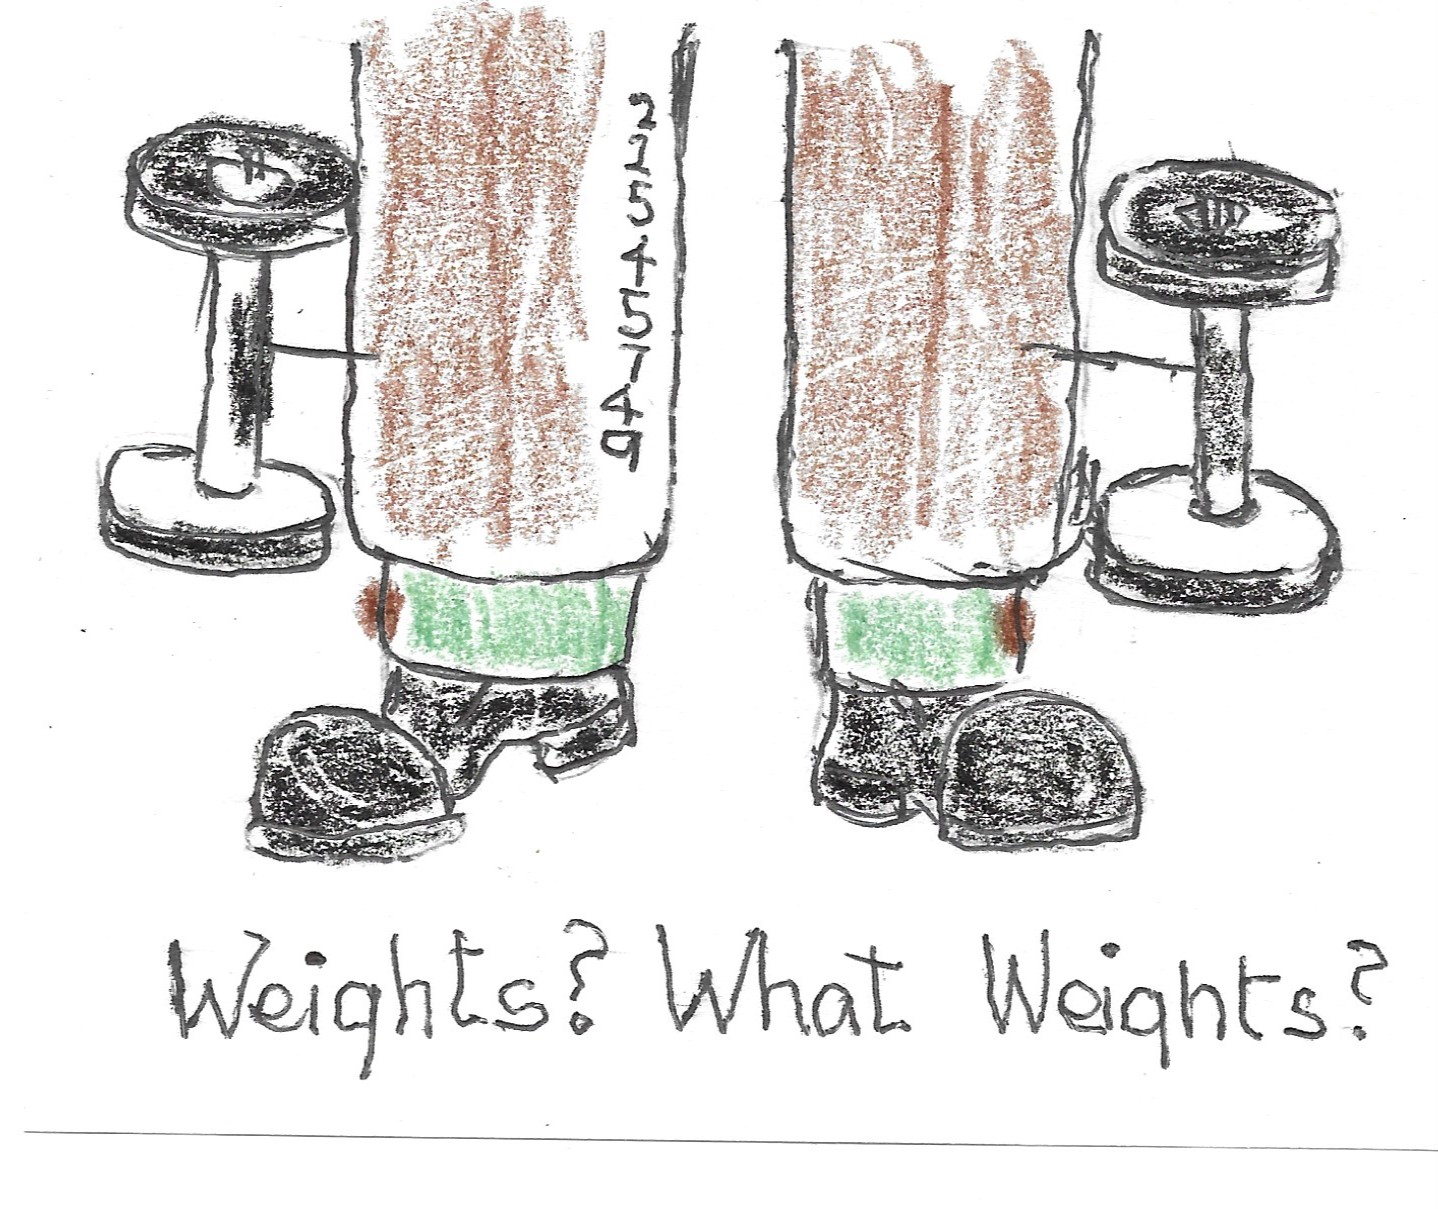 22545749
Weights? What Weights?